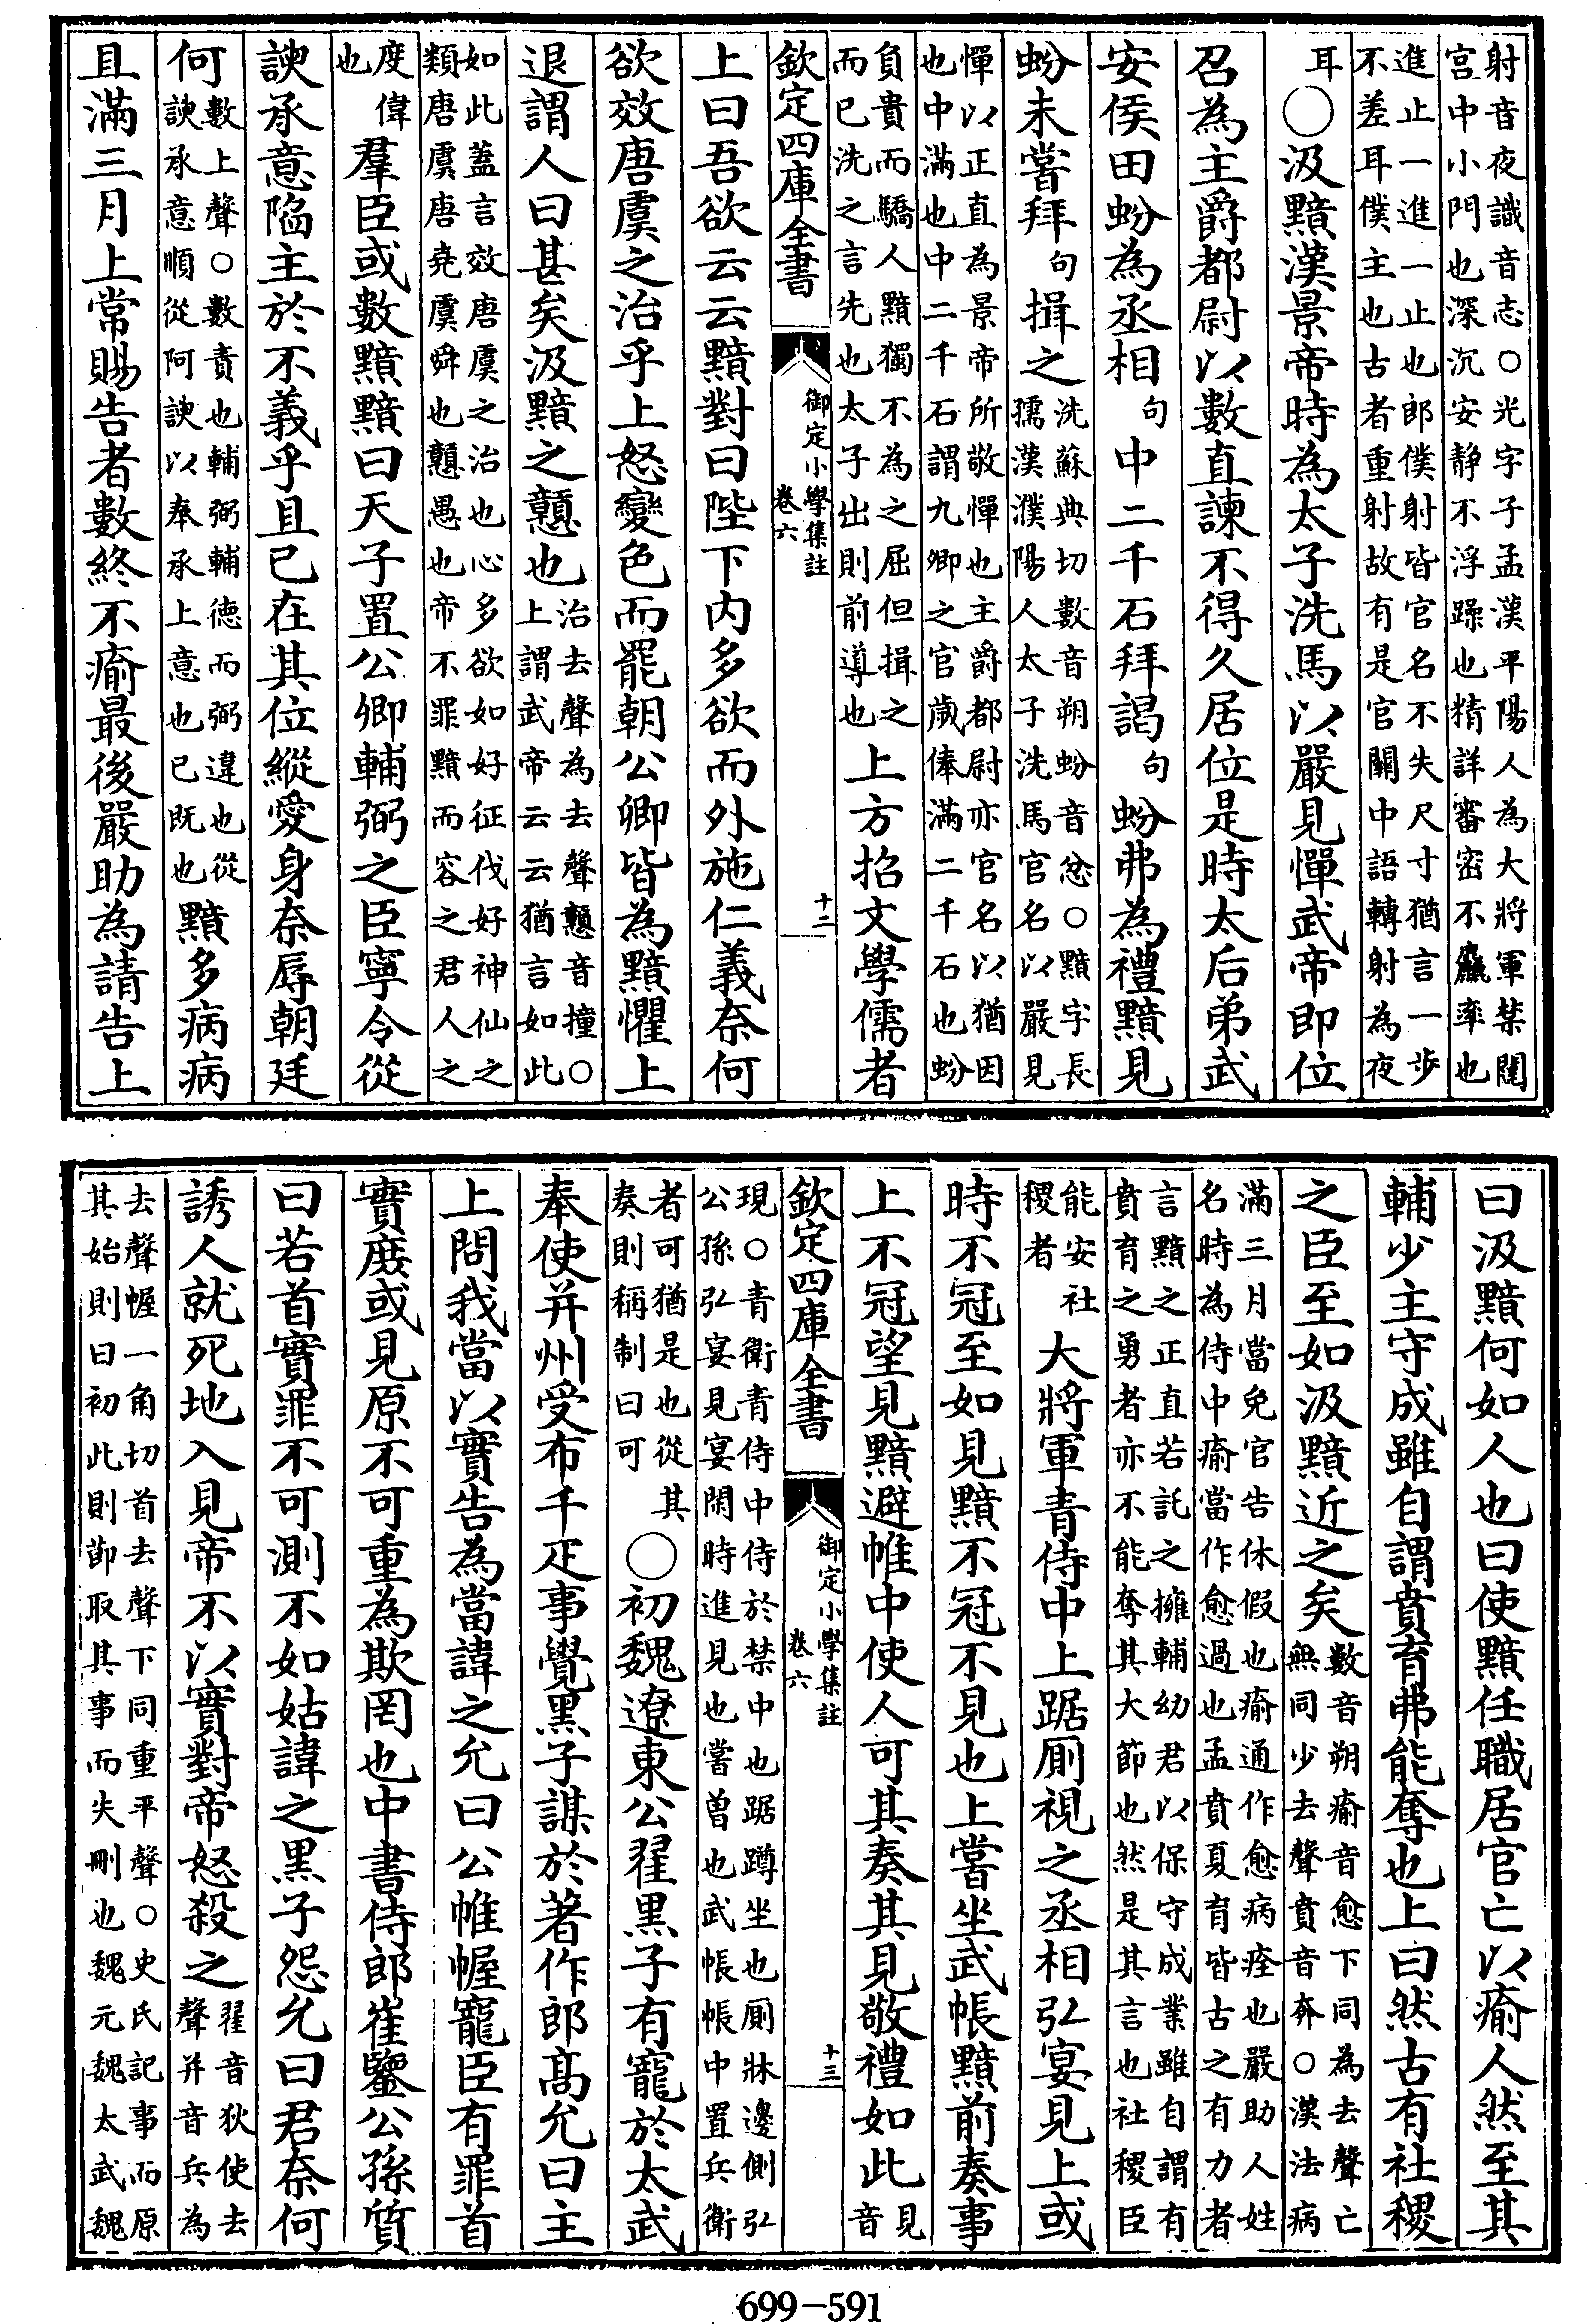 射音夜識音志○光字子孟漢平陽人為大將軍禁闥
宫中小門也深沉安静不浮躁也精詳審密不麤率也
進止一進一止也郎僕射皆官名不失尺寸猶言一步
不差耳僕主也古者重射故有是官關中語轉射為夜
耳○汲黯漢景帝時為太子洗馬以嚴見憚武帝即位
召為主爵都尉以數直諫不得久居位是時太后弟武
安侯田蚡為丞相句中二千石拜謁句蚡弗為禮黯見
蚡未嘗拜句揖之洗蘇典切數音朔蚡音忿○黯字長
孺漢濮陽人太子洗馬官名以嚴見
憚以正直為景帝所敬憚也主爵都尉亦官名以猶因
也中滿也中二千石謂九卿之官歲俸滿二千石也蚡
負貴而驕人黯獨不為之屈但揖之
而已洗之言先也太子出則前導也上方招文學儒者
欽定四庫全書
御定小學集註
卷六
十二
上曰吾欲云云黯對曰陛下内多欲而外施仁義奈何
欲效唐虞之治乎上怒變色而罷朝公卿皆為黯懼上
退謂人曰甚矣汲黯之戇也治去聲為去聲戇音撞○
上謂武帝云云猶言如此
如此蓋言效唐虞之治也心多欲如好征伐好神仙之
類唐虞唐堯虞舜也戇愚也帝不罪黯而容之君人之
度偉
也羣臣或數黯黯曰天子置公卿輔弼之臣寧令從
諛承意陷主於不義乎且已在其位縱愛身奈辱朝廷
何數上聲○數責也輔弼輔德而弼違也從
諛承意順從阿諛以奉承上意也已既也黯多病病
且滿三月上常賜告者數終不瘉最後嚴助為請告上
曰汲黯何如人也曰使黯任職居官亡以瘉人然至其
輔少主守成雖自謂賁育弗能奪也上曰然古有社稷
之臣至如汲黯近之矣數音朔瘉音愈下同為去聲亡
無同少去聲賁音奔○漢法病
滿三月當免官告休假也瘉通作愈病痊也嚴助人姓
名時為侍中瘉當作愈過也孟賁夏育皆古之有力者
言黯之正直若託之擁輔幼君以保守成業雖自謂有
賁育之勇者亦不能奪其大節也然是其言也社稷臣
能安社
稷者大將軍青侍中上踞厠視之丞相弘宴見上或
時不冠至如見黯不冠不見也上嘗坐武帳黯前奏事
上不冠望見黯避帷中使人可其奏其見敬禮如此見
音
欽定四庫全書
御定小學集註
卷六
十三
現○青衛青侍中侍於禁中也踞蹲坐也厠牀邊側弘
公孫弘宴見宴閑時進見也嘗曽也武帳帳中置兵衛
者可猶是也從其
奏則稱制曰可○初魏遼東公翟黑子有寵於太武
奉使并州受布千疋事覺黑子謀於著作郎高允曰主
上問我當以實告為當諱之允曰公帷幄寵臣有罪首
實庶或見原不可重為欺罔也中書侍郎崔鑒公孫質
曰若首實罪不可測不如姑諱之黑子怨允曰君奈何
誘人就死地入見帝不以實對帝怒殺之翟音狄使去
聲并音兵為
去聲幄一角切首去聲下同重平聲○史氏記事而原
其始則曰初此則節取其事而失刪也魏元魏太武魏
699-591